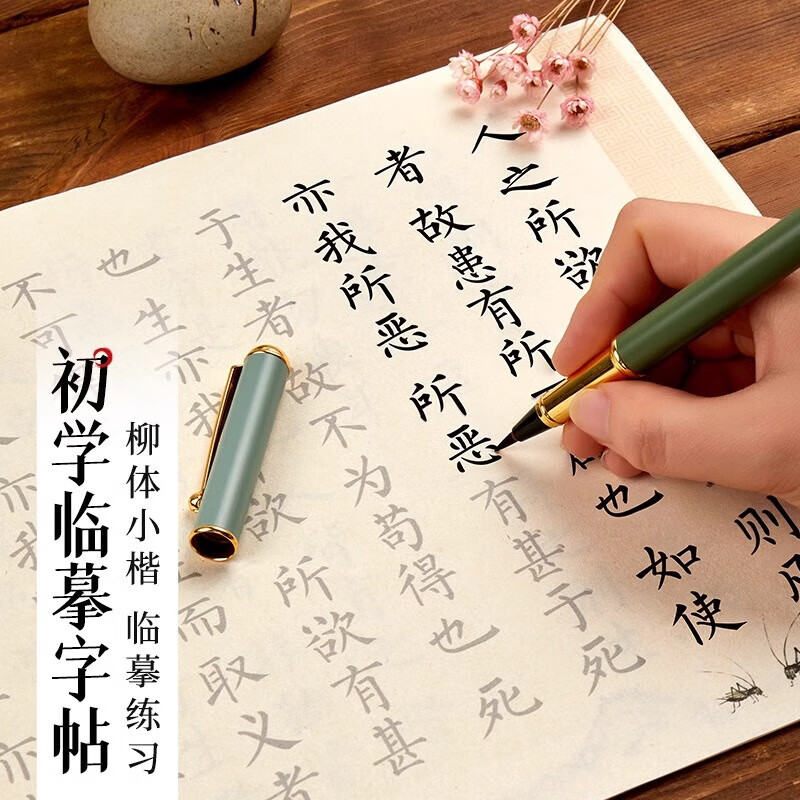 初学临摹字帖
柳体小楷 临摹练习
不可
而取义者
也生亦我
欲所欲有甚
于生者故不为苟得也死
亦我所恶所恶有甚于死
者故患有所
也如使
人之所欲
则凡